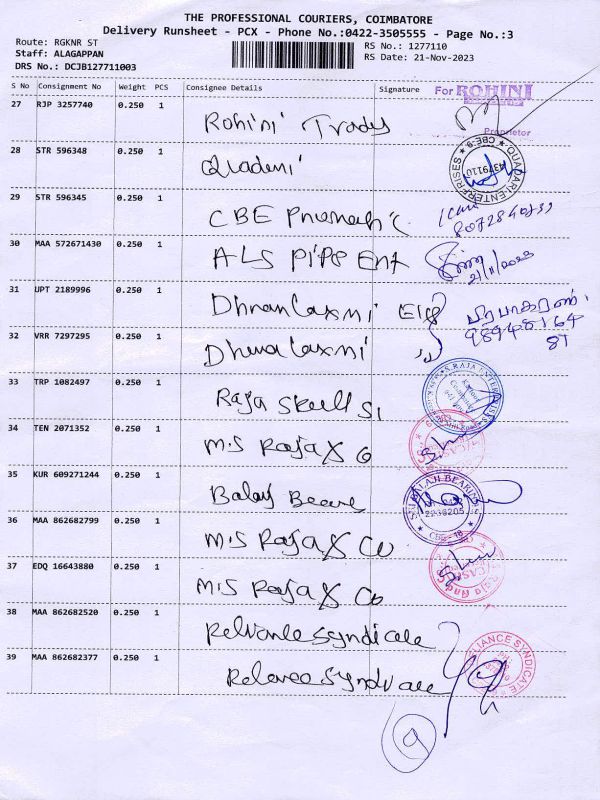 THE PROFESSIONAL COURIERS, COIMBATORE
Delivery Runsheet - PCX - Phone No.:0422-3505555 - Page No.:3
Route: RGKNR ST
Staff: ALAGAPPAN
DRS No.: DCJB127711003
RS No.: 1277110
RS Date: 21-Nov-2023
S No Consignment No Weight PCS Consignee Details Signature
For ROHINI
Proprietor
27 RJP 3257740 0.250 1 Rohini Trades
28 STR 596348 0.250 1 Quadeni
QUADARI ENTERPRISES CBE-9
4379110
29 STR 596345 0.250 1 CBE
30 MAA 572671430 0.250 1 ALS PIPE Ent
21/11/2023
31 UPT 2189996 0.250 1 Dhnanlaxmi
பிரபாகரன்
98948164
87
32 VRR 7297295 0.250 1 Dhanalaxmi
33 TRP 1082497 0.250 1 Raja
34 TEN 2071352 0.250 1 M.S Raja &
35 KUR 609271244 0.250 1 Balaji
BALAJI BEARING
CBE-18
36 MAA 862682799 0.250 1 M.S Raja & Co
37 EDQ 16643880 0.250 1 M.S Raja & Co
38 MAA 862682520 0.250 1 Relianle syndicate
39 MAA 862682377 0.250 1 syndicate
RELIANCE SYNDICATE
9